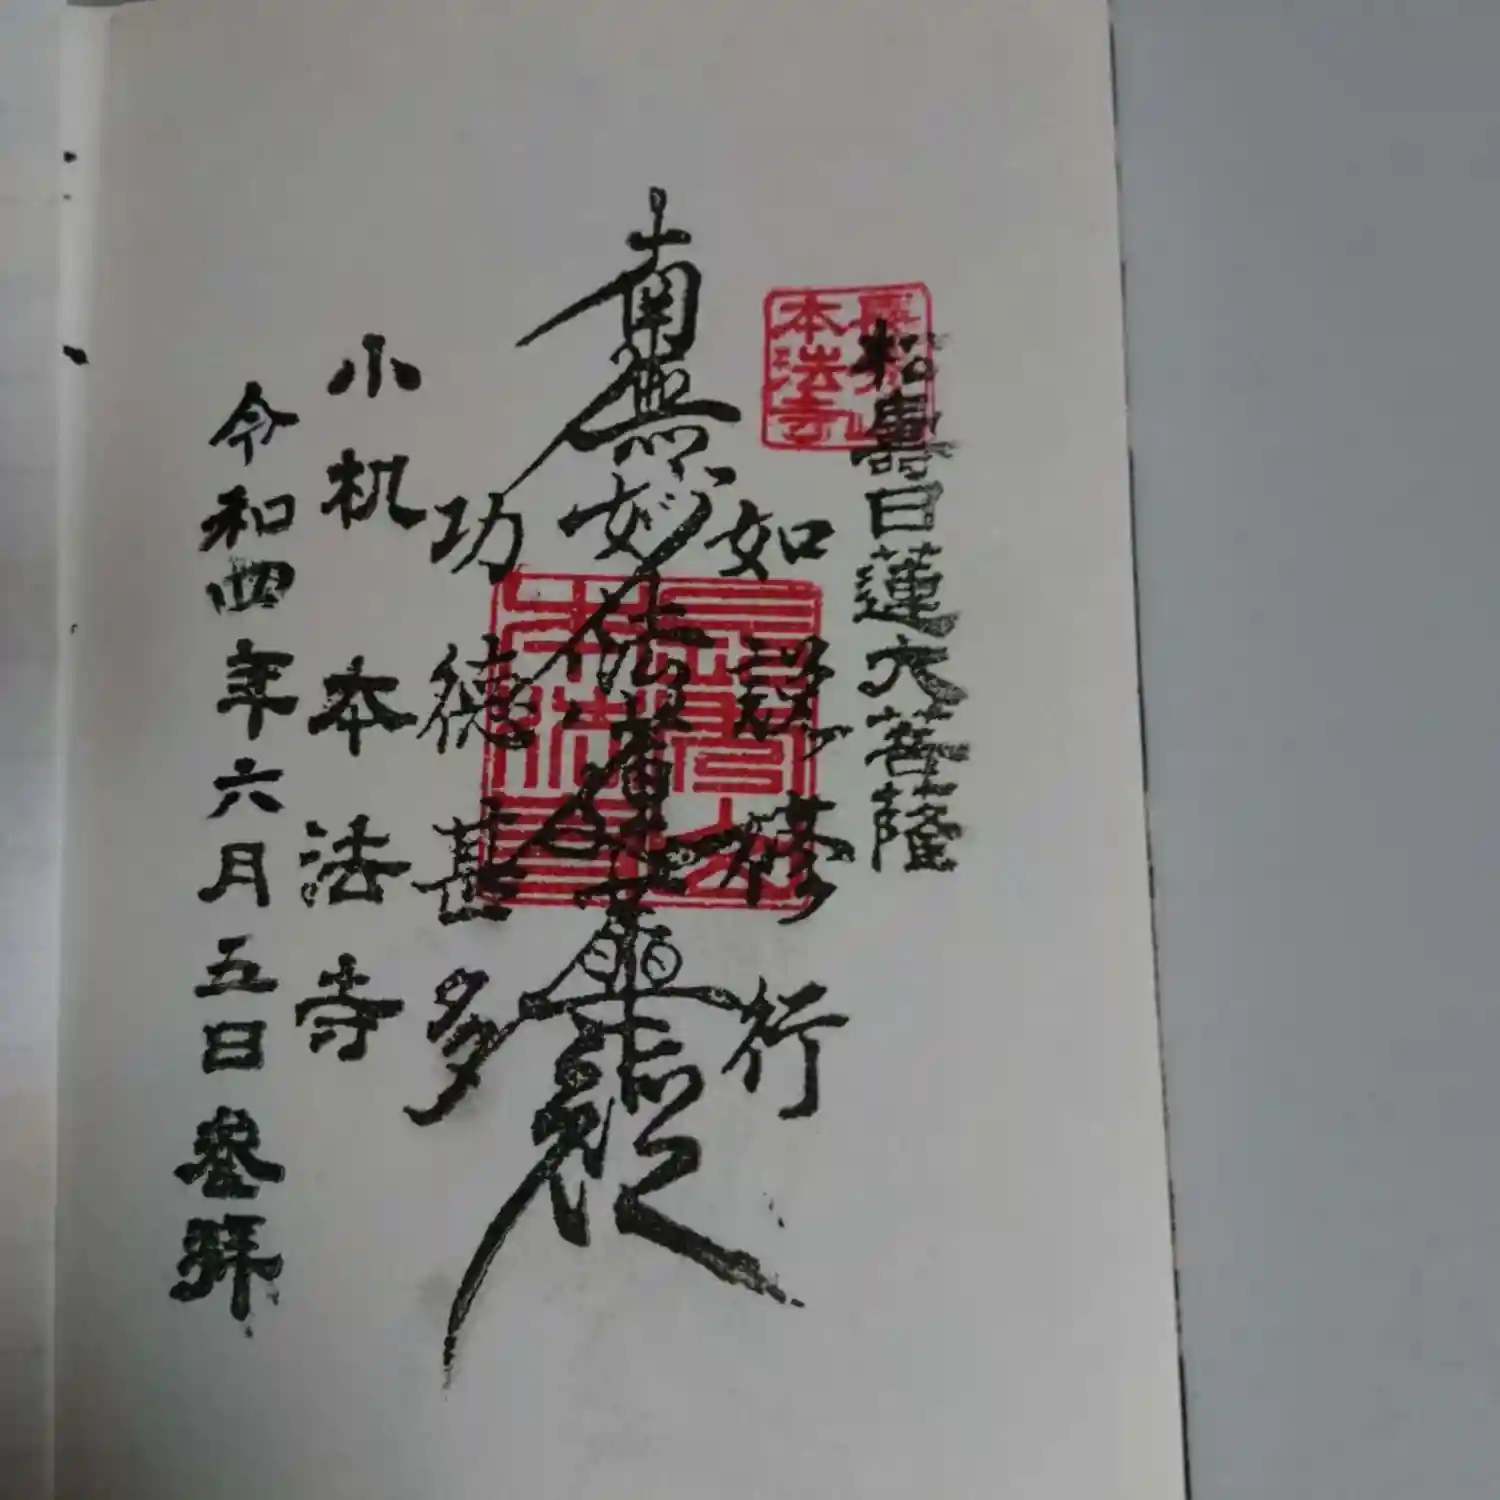 松壽日蓮大菩薩
本法寺
如説修行
南無妙法蓮華経
功德甚多
小机 本法寺
令和四年六月五日 参拜